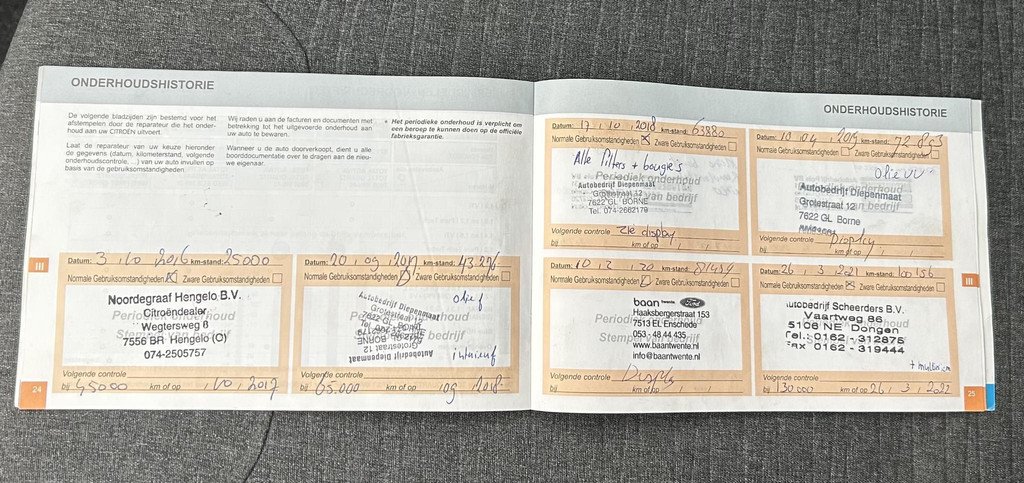 ONDERHOUDSHISTORIE
De volgende bladzijden zijn bestemd voor het
afstempelen door de reparateur die het onder-
houd aan uw CITROËN uitvoert.
Laat de reparateur van uw keuze hieronder
de gegevens (datum, kilometerstand, volgende
onderhoudscontrole, ...) van uw auto invullen op
basis van de gebruiksomstandigheden.
Wij raden u aan de facturen en documenten met
betrekking tot het uitgevoerde onderhoud aan
uw auto te bewaren.
Wanneer u de auto doorverkoopt, dient u alle
boorddocumentatie over te dragen aan de nieu-
we eigenaar.
* Het periodieke onderhoud is verplicht om
een beroep te kunnen doen op de officiële
fabrieksgarantie.
Datum: 3, 10, 2016 km-stand: 25000
Normale Gebruiksomstandigheden Zware Gebruiksomstandigheden
Periodiek onderhoud
Stempel van bedrijf
Noordegraaf Hengelo B.V.
Citroëndealer
Wegtersweg 8
7556 BR Hengelo (O)
074-2505757
Volgende controle
bij 45000 km of op , 10, 2017
Datum: 20, 09, 2017 km-stand: 43.226
Normale Gebruiksomstandigheden Zware Gebruiksomstandigheden
Autobedrijf Diepenmaat
Grotestraat 12
7622 GL Borne
Volgende controle
bij 65.000 km of op 09, 2018
24
III
ONDERHOUDSHISTORIE
Datum: 17, 10, 2018 km-stand: 63880
Normale Gebruiksomstandigheden Zware Gebruiksomstandigheden
Alle filters + bougie's
Periodiek onderhoud
Autobedrijf Diepenmaat
Grotestraat 12
7622 GL BORNE
Tel. 074-2662179
Volgende controle Zie display
bij km of op
Datum: 10, 04, 2019 km-stand:
Normale Gebruiksomstandigheden Zware Gebruiksomstandigheden
Autobedrijf Diepenmaat
Grotestraat 12
7622 GL Borne
Volgende controle Display
bij km of op
Datum: 10, 2, 20 km-stand:
Normale Gebruiksomstandigheden Zware Gebruiksomstandigheden
baan twente. Ford
Haaksbergerstraat 153
7513 EL Enschede
053 - 48 44 435
www.baantwente.nl
info@baantwente.nl
Volgende controle
bij km of op
Datum: 26, 3, 2021 km-stand: 100156
Normale Gebruiksomstandigheden Zware Gebruiksomstandigheden
Autobedrijf Scheerders B.V.
Vaartweg 86
5106 NE Dongen
Tel.: 0162 - 312875
Fax 0162 - 319444
Volgende controle
bij 130.000 km of op 26, 3, 2022
III
25